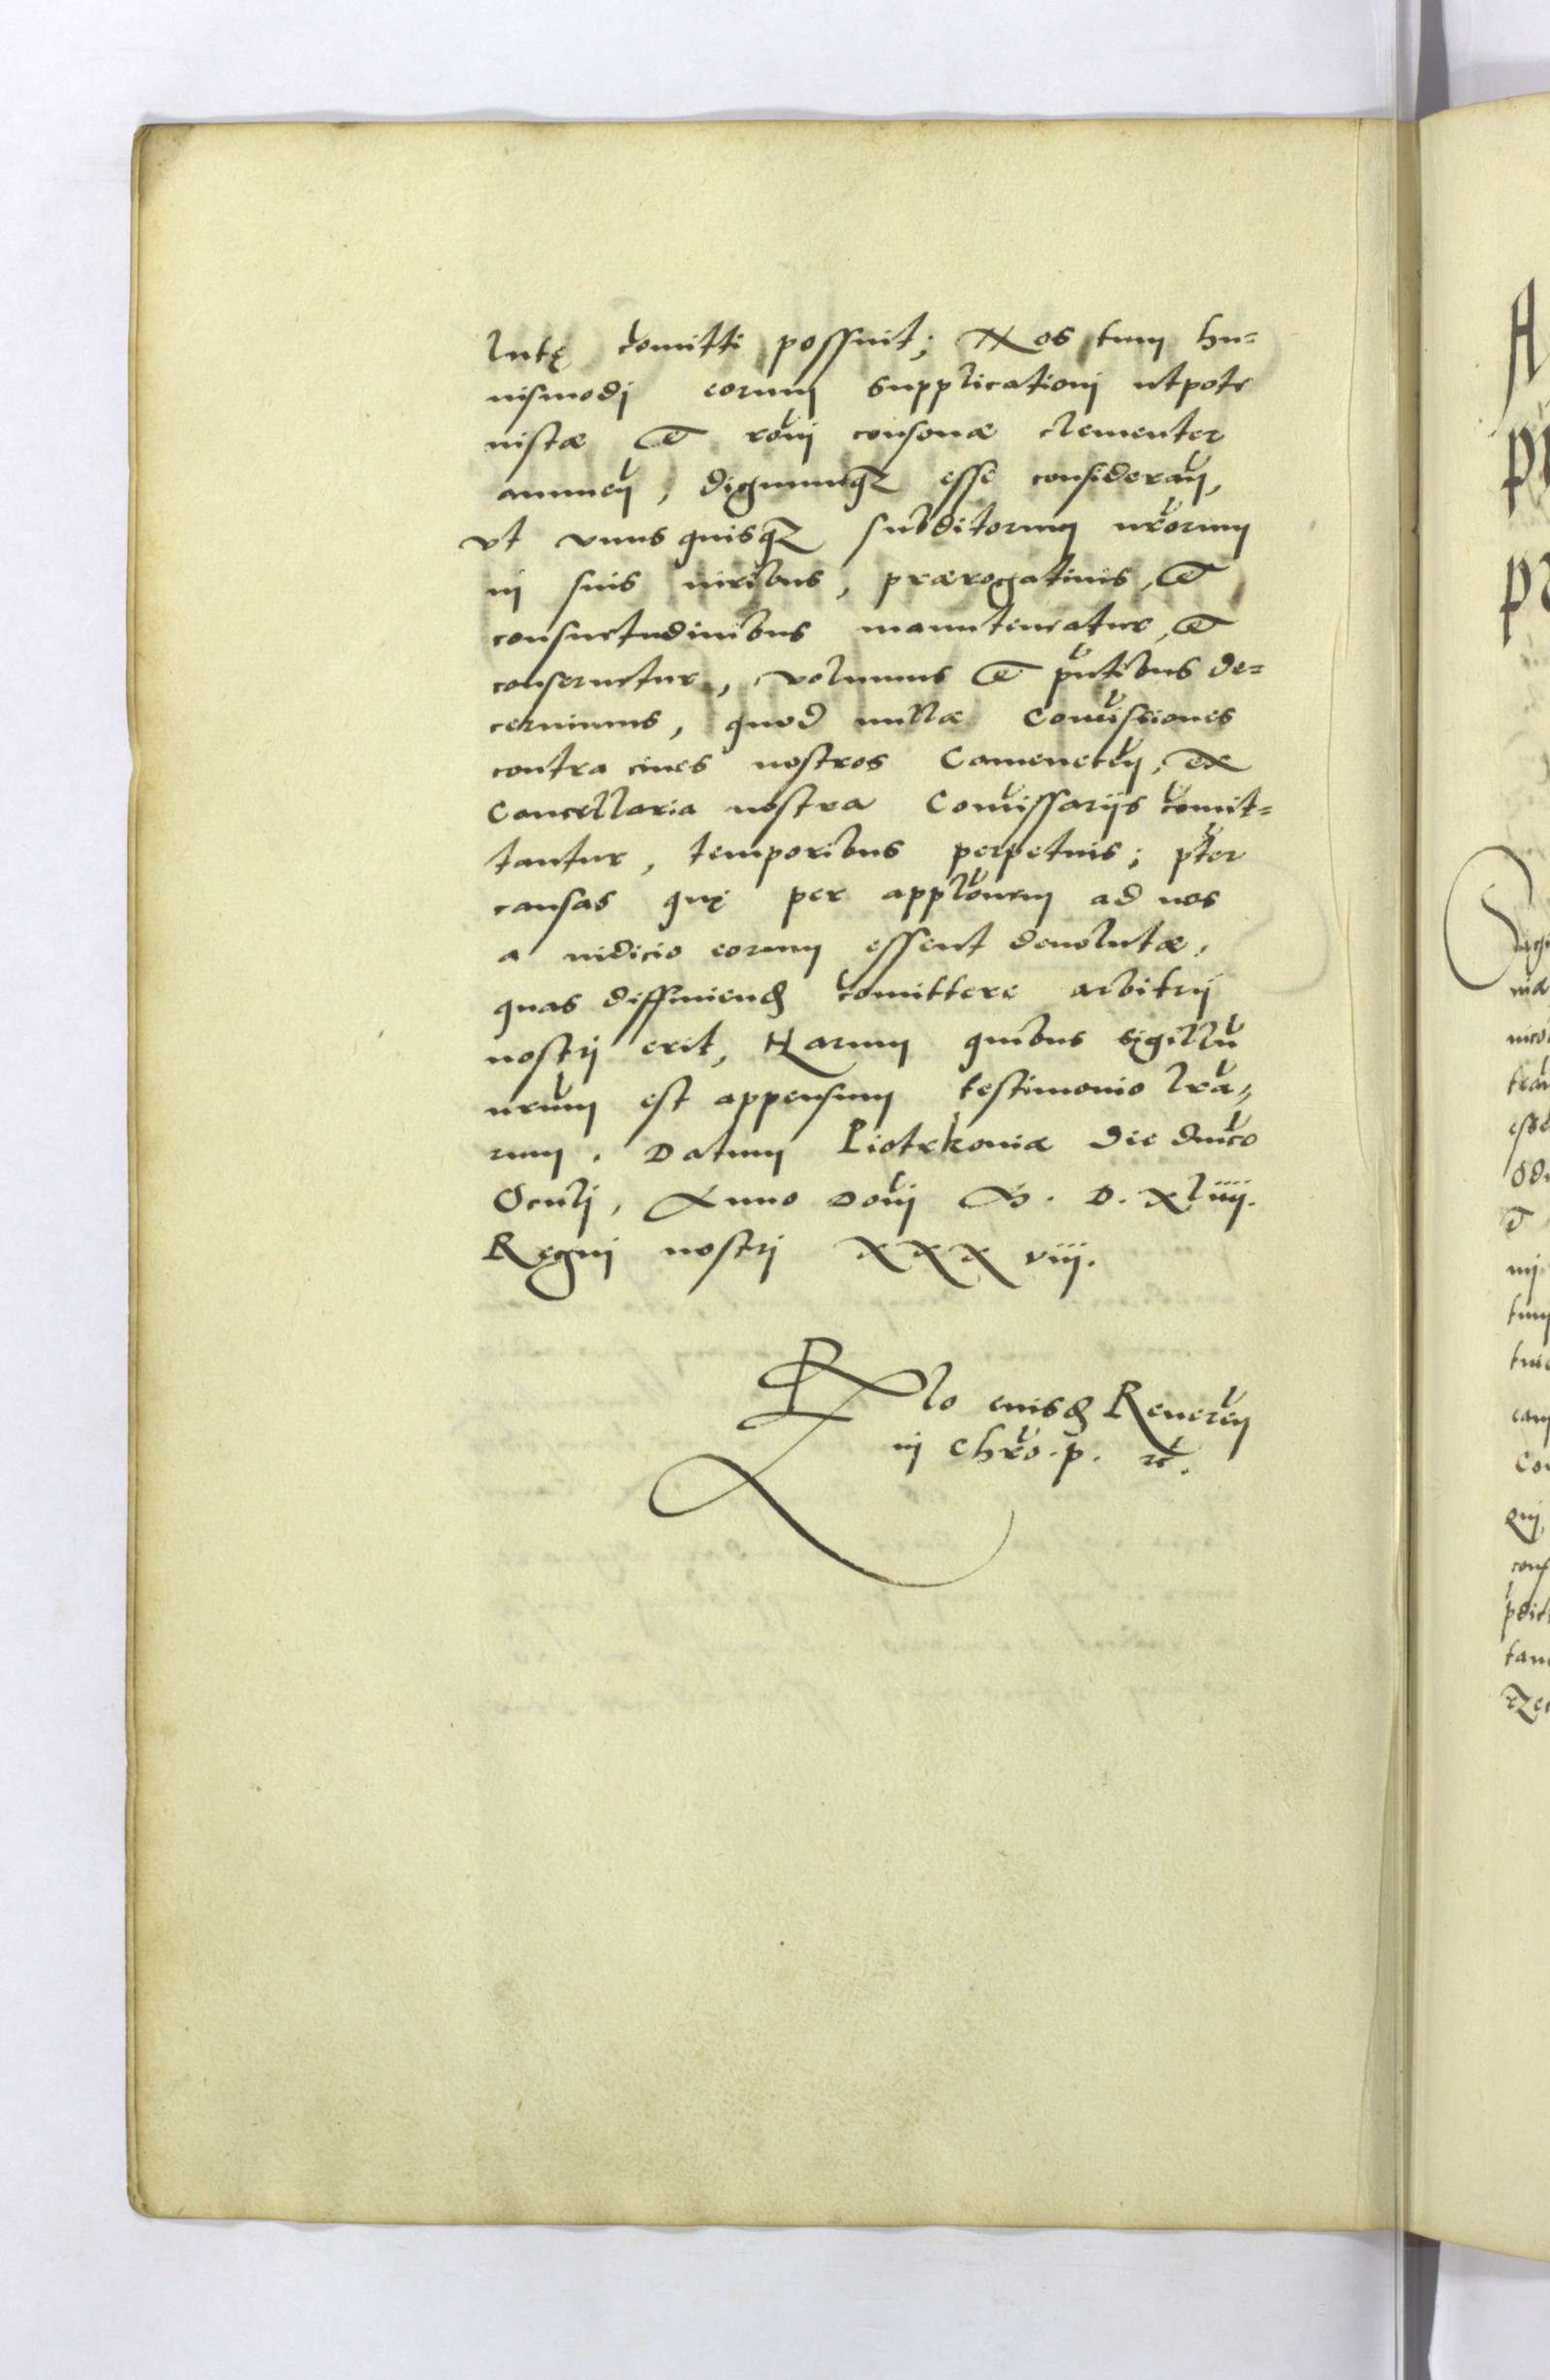 lutę comitti possunt; Nos tum hu=
iusmodj eorum supplicationj utpote
iustæ et roni consonæ clementer
annuen, dignumq3 esse consideran,
ut unus quisq3 subditorum nrorum
in suis iuribus, prærogatiuis, et
consuetudinibus manuteneatur, et
conseruetur, volumus et pntibus de=
cernimus, quod nullæ Comissiones
contra ciues nostros Camenecen, ex
Cancellaria nostra Comissarijs comit=
tantur, temporibus perpetuis; pter
causas quę per applonem ad nos
a iudicio eorum essent deuolutæ,
quas diffiniend comittere arbitrij
nostrj erit, Harum quibus sigillu
nrum est appensum testimonio lra=
rum. Datum Piotrkouiæ die dnico
Oculj, Anno Donj M. D. xliiij.
Regnj nostrj XXX viij.
Rlo eiusd Reueren
in Chro. p. etc.
A
pr
pr